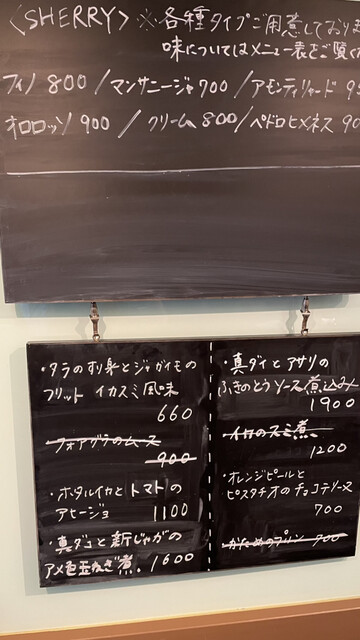 〈SHERRY〉※各種タイプご用意しており
味についてはメニュー表をご覧く
フィノ 800 / マンサニージャ 700 / アモンティリャード 9
オロロッソ 900 / クリーム 800 / ペドロヒメネス 90
・タラのすり身とジャガイモの
フリット イカスミ風味
660
フォアグラのムース
900
・ホタルイカとトマトの
アヒージョ 1100
・真ダコと新じゃがの
アメ色玉ねぎ煮. 1600
・真ダイとアサリの
ふきのとうソース煮込み
1900
・イカのスミ煮
1200
・オレンジピールと
ピスタチオのチョコテリーヌ
700
・かためのプリン 700